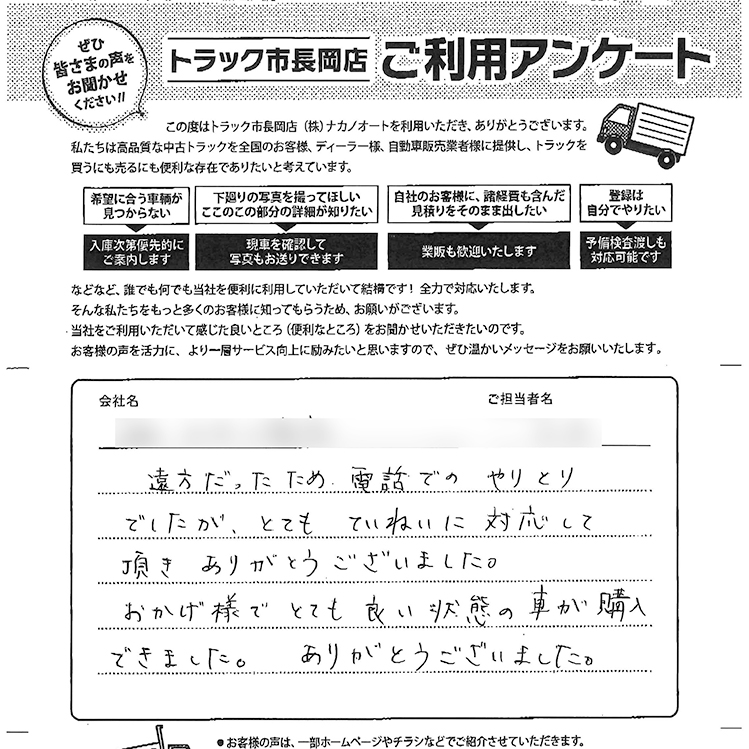 ぜひ
皆さまの声を
お聞かせ
ください!!
トラック市長岡店 ご利用アンケート
この度はトラック市長岡店(株)ナカノオートを利用いただき、ありがとうございます。
私たちは高品質な中古トラックを全国のお客様、ディーラー様、自動車販売業者様に提供し、トラックを
買うにも売るにも便利な存在でありたいと考えています。
希望に合う車輌が
見つからない
入庫次第優先的に
ご案内します
下廻りの写真を撮ってほしい
ここのこの部分の詳細が知りたい
現車を確認して
写真もお送りできます
自社のお客様に、諸経費も含んだ
見積りをそのまま出したい
業販も歓迎いたします
登録は
自分でやりたい
予備検査渡しも
対応可能です
などなど、誰でも何でも当社を便利に利用していただいて結構です!全力で対応いたします。
そんな私たちをもっと多くのお客様に知ってもらうため、お願いがございます。
当社をご利用いただいて感じた良いところ(便利なところ)をお聞かせいただきたいのです。
お客様の声を活力に、より一層サービス向上に励みたいと思いますので、ぜひ温かいメッセージをお願いいたします。
会社名 ご担当者名
遠方だったため 電話での やりとり
でしたが、とても ていねいに 対応して
頂き ありがとうございました。
おかげ様で とても 良い 状態の 車が 購入
できました。 ありがとうございました。
●お客様の声は、一部ホームページやチラシなどでご紹介させていただきます。